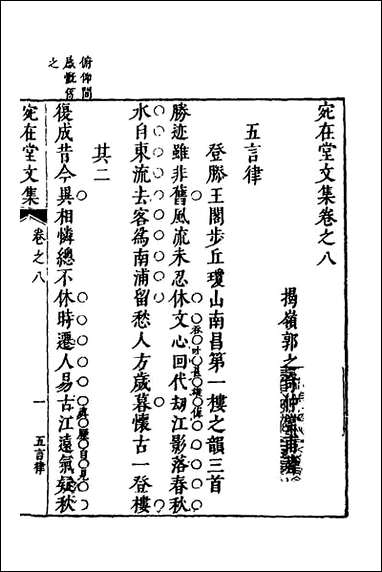 宛在堂文集卷之八
揭嶺郭之奇
五言律
登滕王閣步丘瓊山南昌第一樓之韻三首
勝迹雖非舊風流未忍休文心回代刼江影落春秋
水自東流去客為南浦留愁人方歲暮懷古一登樓
其二
俯仰間
感慨係
之
復成昔今異相憐總不休時遷人易古江遠氣凝秋
宛在堂文集
卷之八
一
五言律